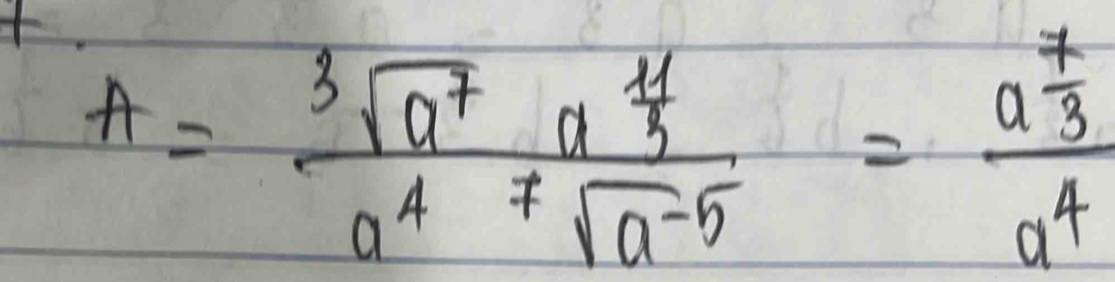 7.
A = \frac{\sqrt[3]{a^7} a^{\frac{11}{3}}}{a^4 \sqrt[7]{a^{-5}}} = \frac{a^{\frac{7}{3}}}{a^4}